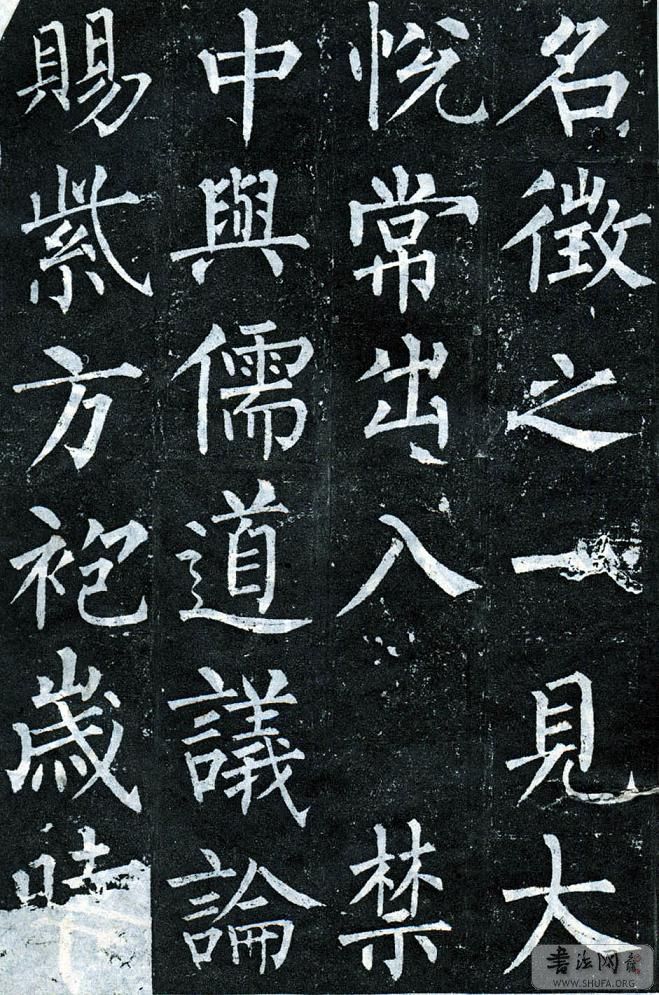 名徵之一見大
悅常出入禁
中與儒道議論
賜紫方袍歲時
書法网
WWW.SHUFA.ORG